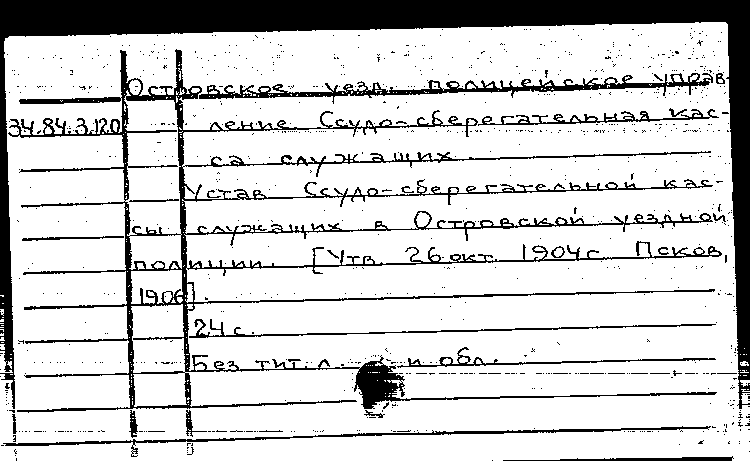 Островское уезд. полицейское управ-
34.84.3.120 ление. Ссудо-сберегательная кас-
са служащих.
Устав Ссудо-сберегательной кас-
сы служащих в Островской уездной
полиции. [Утв. 26 окт. 1904г. Псков,
1906].
24 с.
Без тит. л. и обл.